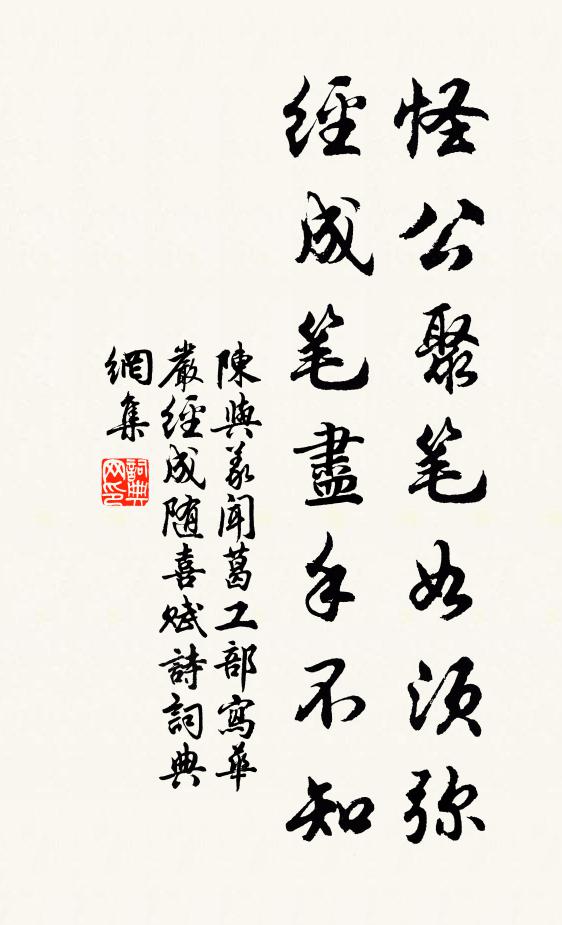 怪公聚笔如须弥
經成笔盡手不知
陳與義聞葛工部寫華
嚴經成随喜赋詩詞典
網集
詞典
网印